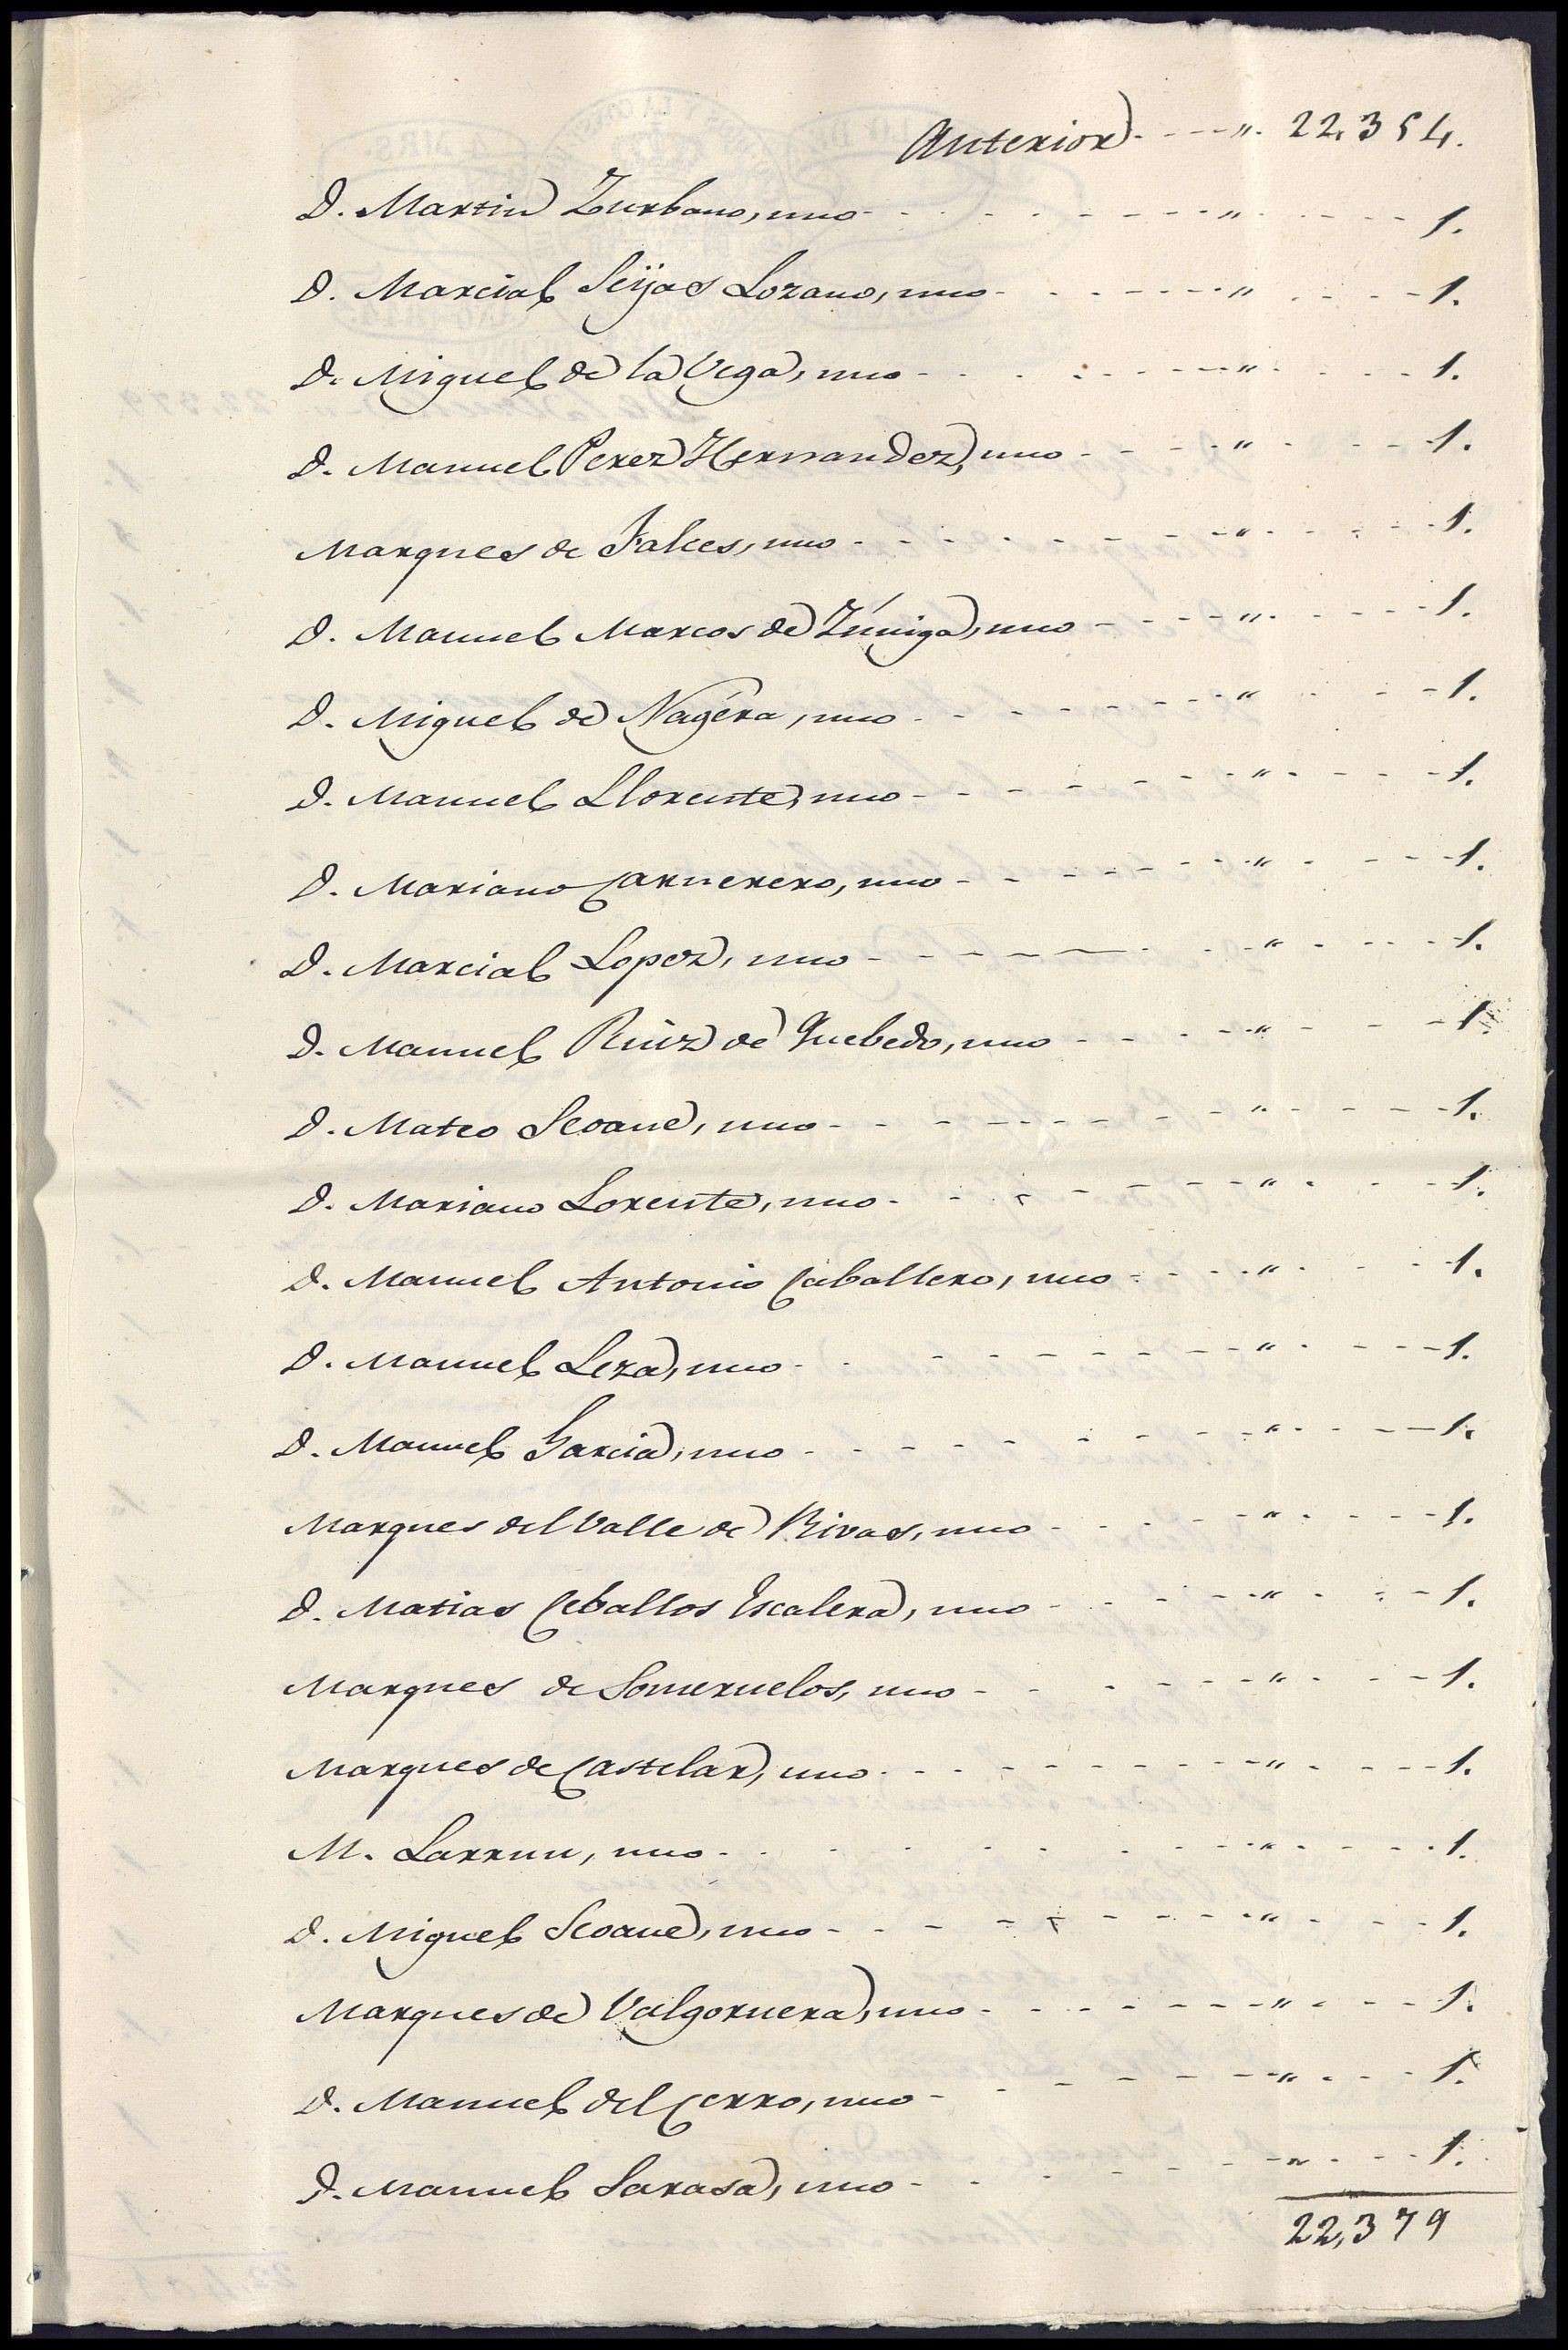 Anterior - - - - " 22,354.
D. Martin Zurbano, uno - - - - " - - - - 1.
D. Marcial Seijas Lozano, uno - - - - " - - - - 1.
D. Miguel de la Vega, uno - - - - " - - - - 1.
D. Manuel Perez Hernandez, uno - - - - " - - - - 1.
Marques de Falces, uno - - - - " - - - - 1.
D. Manuel Marcos de Zúniga, uno - - - - " - - - - 1.
D. Miguel de Nagéra, uno - - - - " - - - - 1.
D. Manuel Llorente, uno - - - - " - - - - 1.
D. Mariano Carnerero, uno - - - - " - - - - 1.
D. Marcial Lopez, uno - - - - " - - - - 1.
D. Manuel Ruiz de Quebedo, uno - - - - " - - - - 1.
D. Mateo Seoane, uno - - - - " - - - - 1.
D. Mariano Lorente, uno - - - - " - - - - 1.
D. Manuel Antonio Caballero, uno - - - - " - - - - 1.
D. Manuel Leza, uno - - - - " - - - - 1.
D. Manuel Garcia, uno - - - - " - - - - 1.
Marques del Valle de Rivas, uno - - - - " - - - - 1.
D. Matias Ceballos Escalera, uno - - - - " - - - - 1.
Marques de Someruelos, uno - - - - " - - - - 1.
Marques de Castelar, uno - - - - " - - - - 1.
M. Larruu, uno - - - - " - - - - 1.
D. Miguel Seoane, uno - - - - " - - - - 1.
Marques de Valgornera, uno - - - - " - - - - 1.
D. Manuel del Cerro, uno - - - - " - - - - 1.
D. Manuel Sarasa, uno - - - - " - - - - 1.
22,379